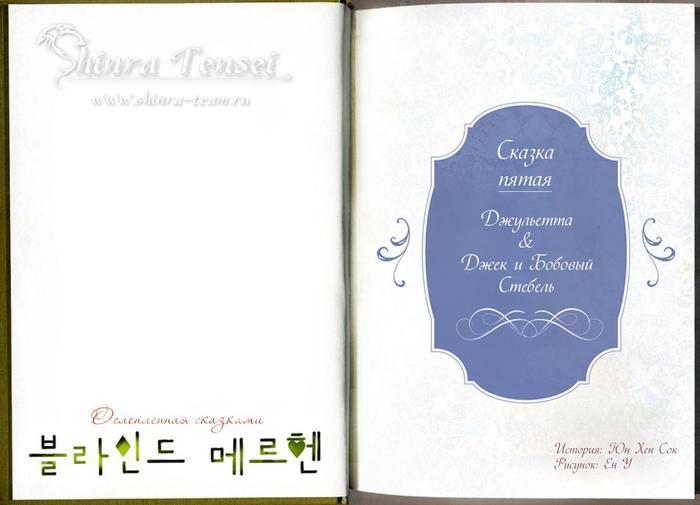 Shinra Tensei.
www.shinra-team.ru
Ослепленная сказками
블라인드 메르헨
Сказка
пятая
Джульетта
&
Джек и Бобовый
Стебель
История: Юн Хен Сок
Рисунок: Ен У